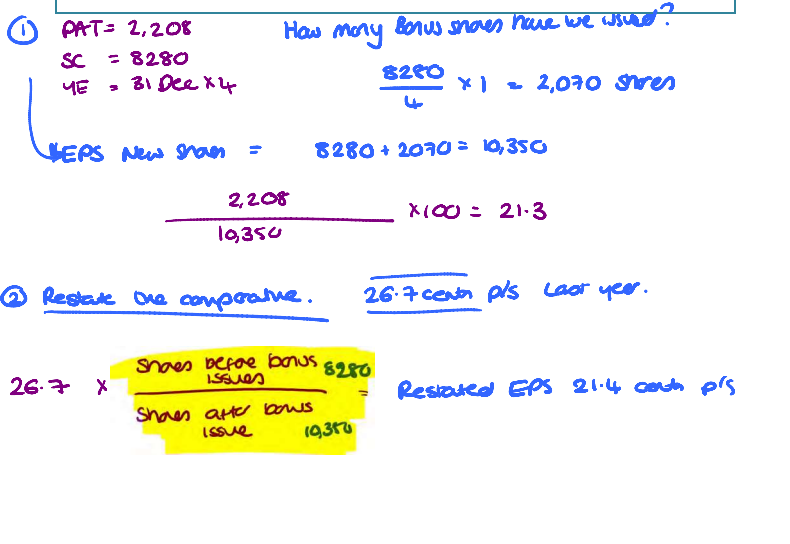 ① PAT = 2,208
How many Bonus shares have we issued?
SC = 8280
YE = 31 Dec X4
8280 / 4 × 1 = 2,070 shares
EPS New shares = 8280 + 2070 = 10,350
2,208 / 10,350 × 100 = 21.3
② Restate the comparative. 26.7 cents p/s Last year.
26.7 × Shares before bonus issues 8280 / Shares after bonus issue 10,350 = Restated EPS 21.4 cents p/s